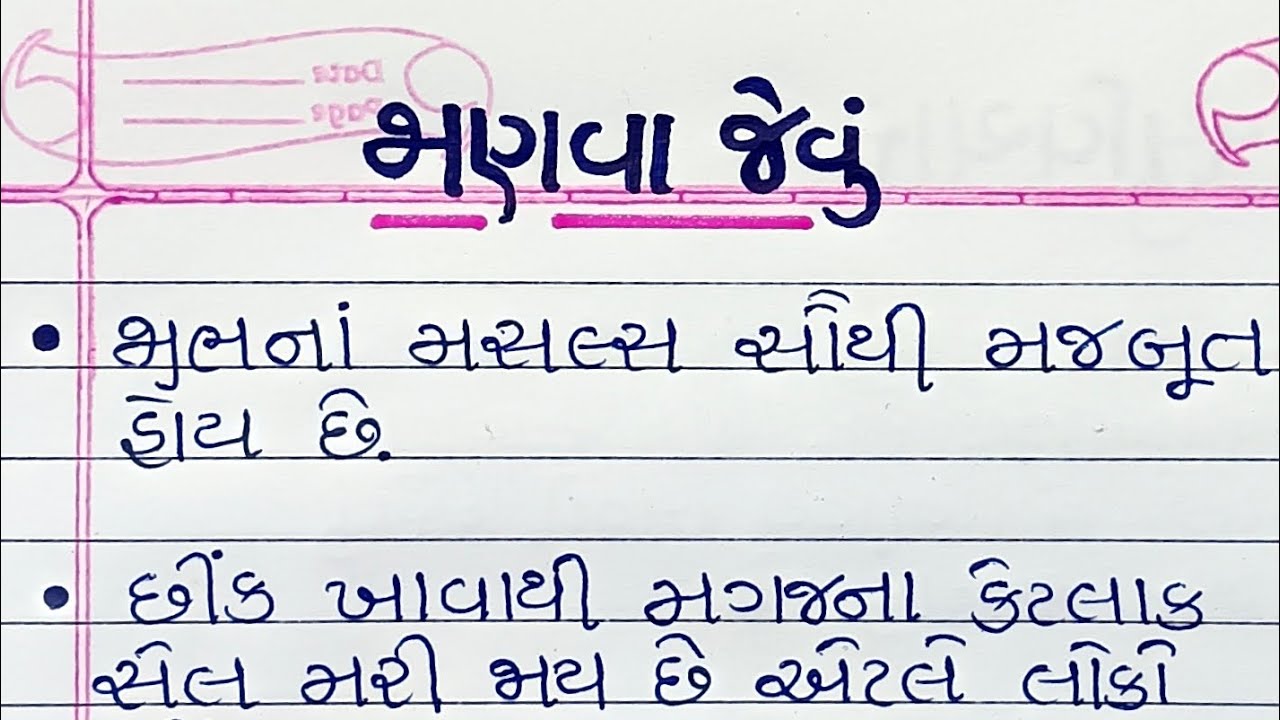 જાણવા જેવું
• જીભનાં મસલ્સ સૌથી મજબૂત
હોય છે.
• છીંક ખાવાથી મગજના કેટલાક
સેલ મરી જાય છે એટલે લોકો